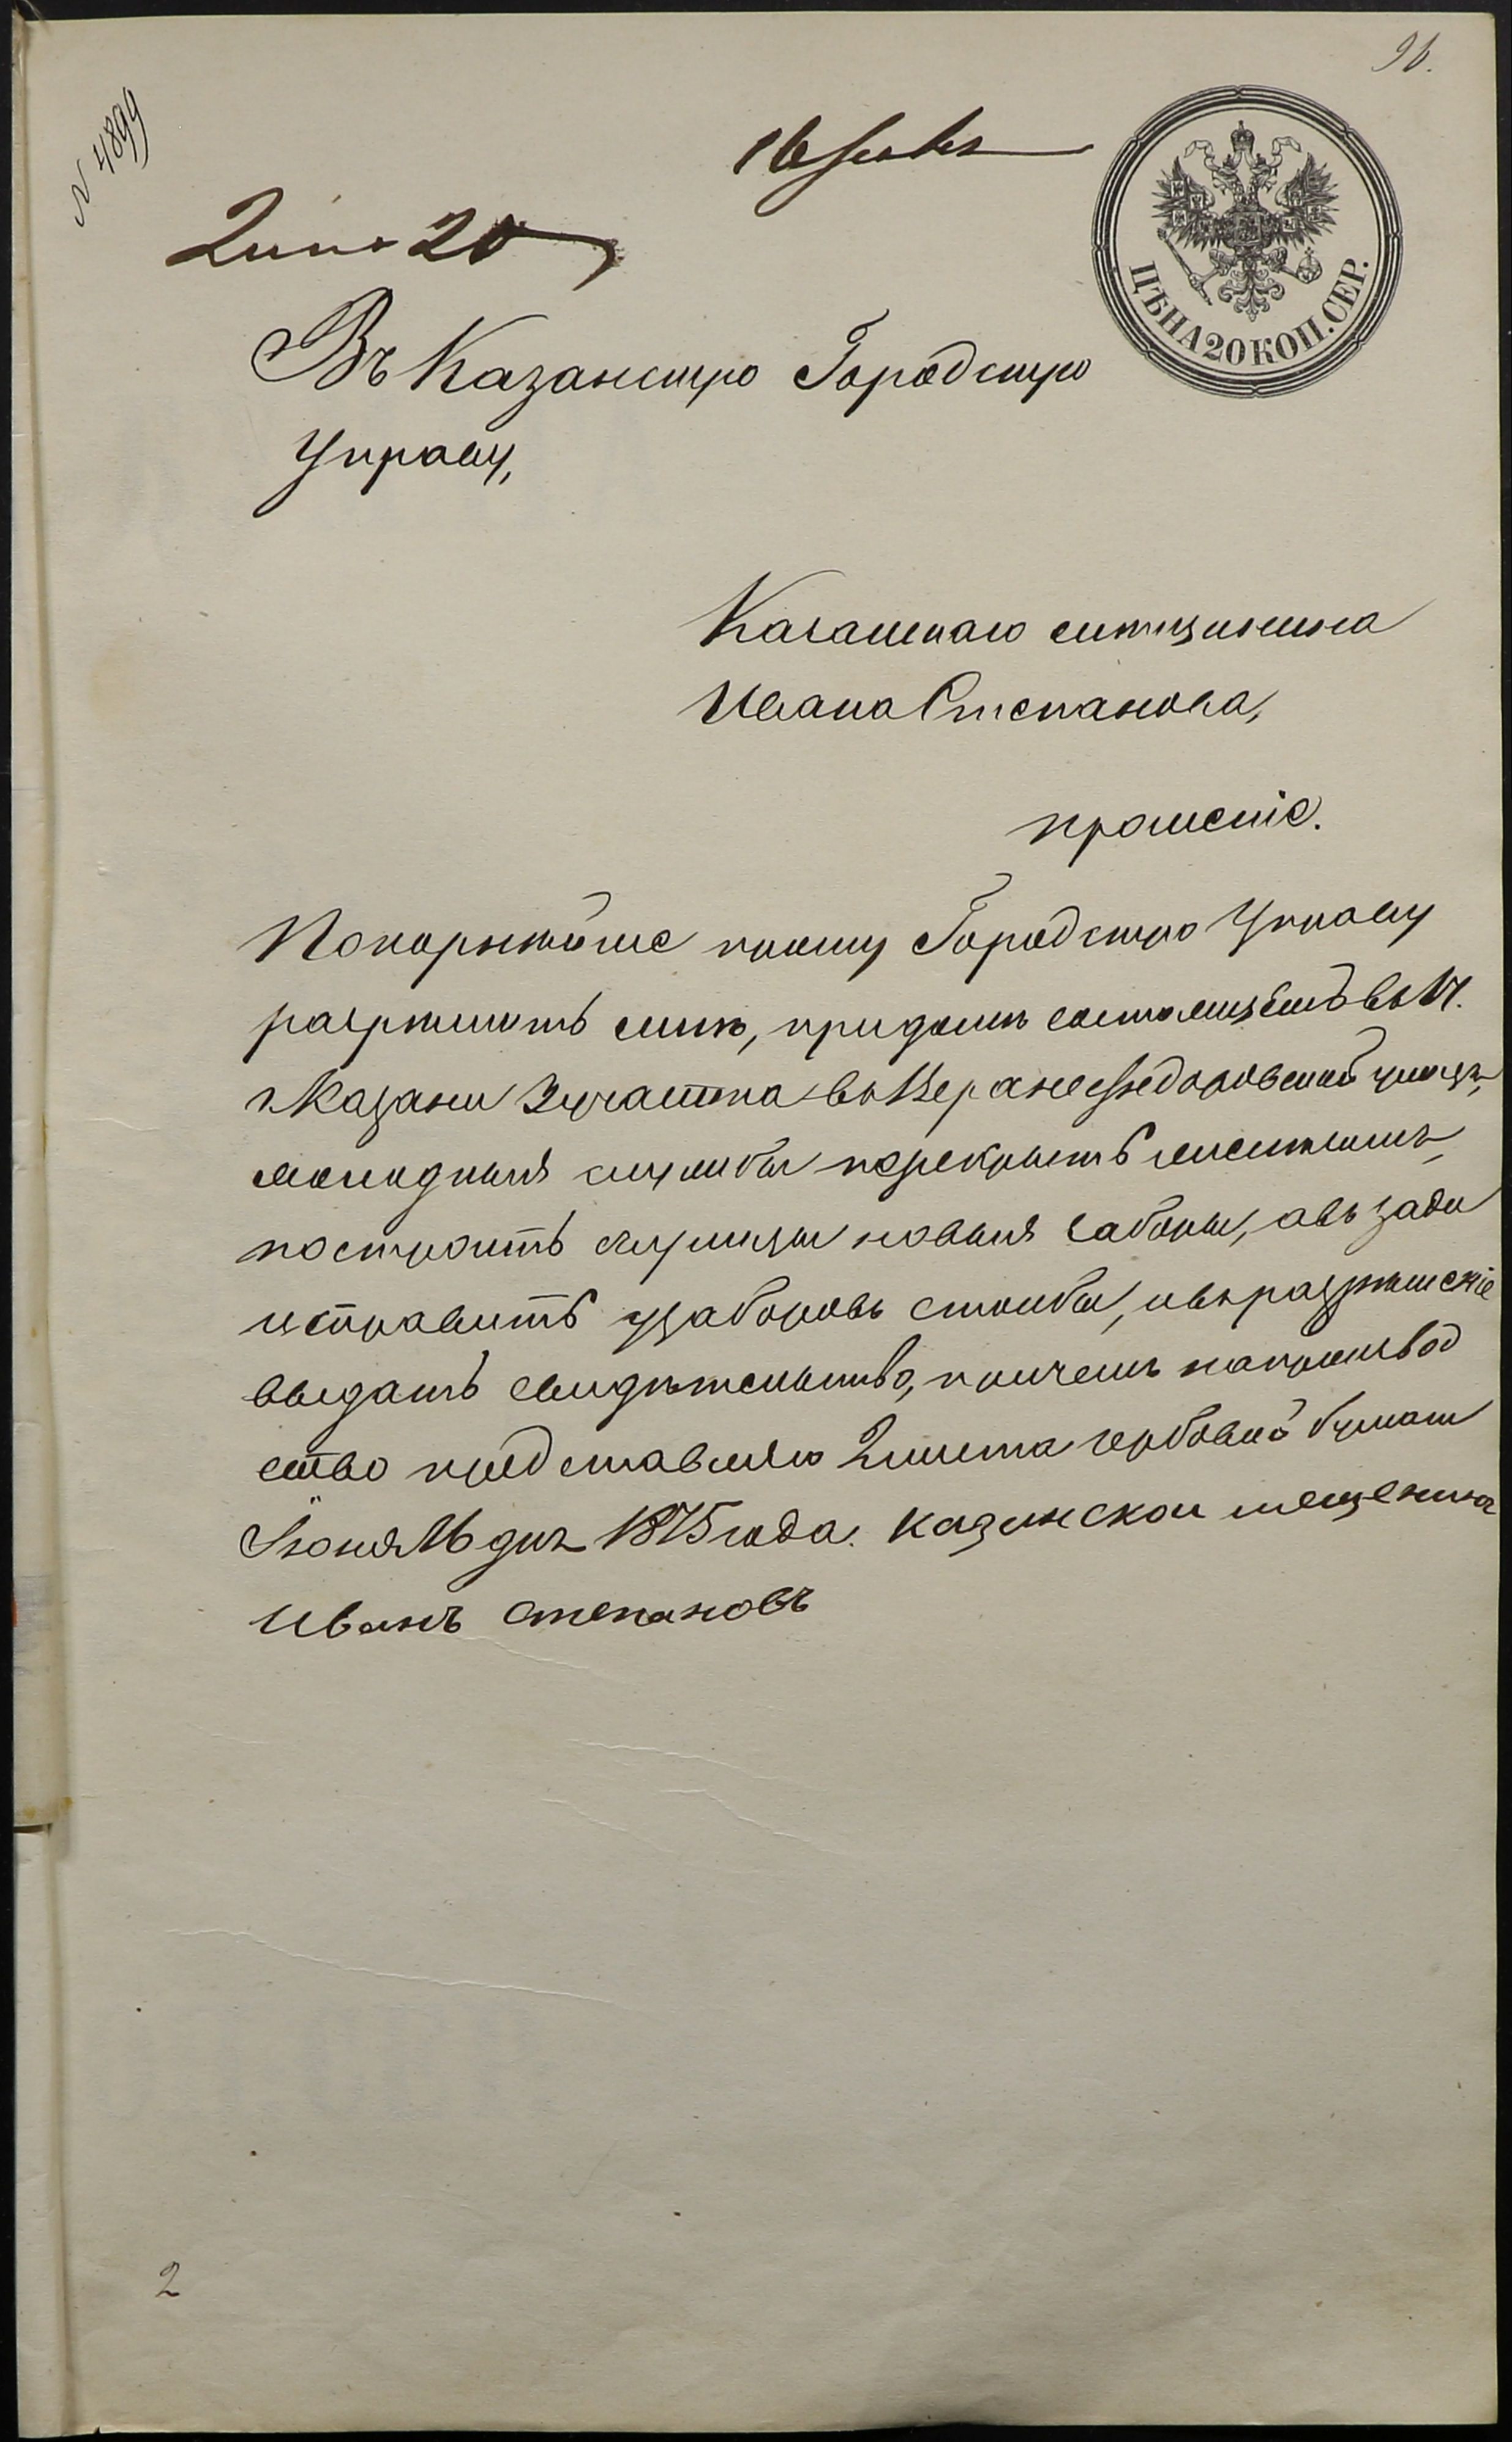 96.
N 4899
16 Іюня
2 листа 20
ЦѢНА 20 КОП. СЕР.
Въ Казанскую Городскую
Управу,
Казанскаго мѣщанина
Ивана Степанова,
прошеніе.
Покорнѣйше прошу Городскую Управу
разрѣшить мнѣ, при домѣ состоящемъ въ
г. Казани 3 участка въ Верхнефедоровской улицѣ,
холодныя службы перекрыть
построить съ улицы новыя заборы, а въ зади
исправить у заборовъ столбы, и въ разрѣшеніе
выдать свидѣтельство, при чемъ на производ
ство представляю 2 листа гербовой бумаги
Іюня 16 дня 1875 года. Казанской мещенинъ
Иванъ Степановъ
2